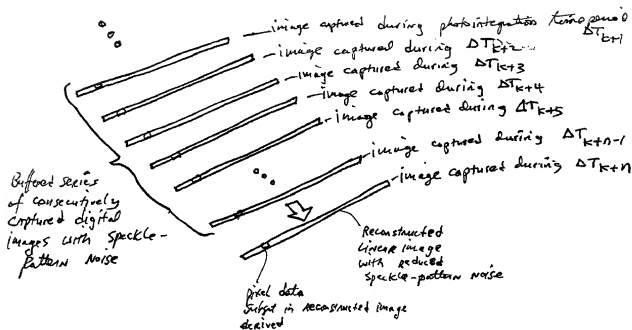 image captured during photointegration time period
ΔTk+1
image captured during ΔTk+2
image captured during ΔTk+3
image captured during ΔTk+4
image captured during ΔTk+5
image captured during ΔTk+n-1
image captured during ΔTk+n
Buffered series
of consecutively
captured digital
images with Speckle-
pattern Noise
Reconstructed
Linear image
with reduced
Speckle-pattern noise
pixel data
subset in reconstructed image
derived